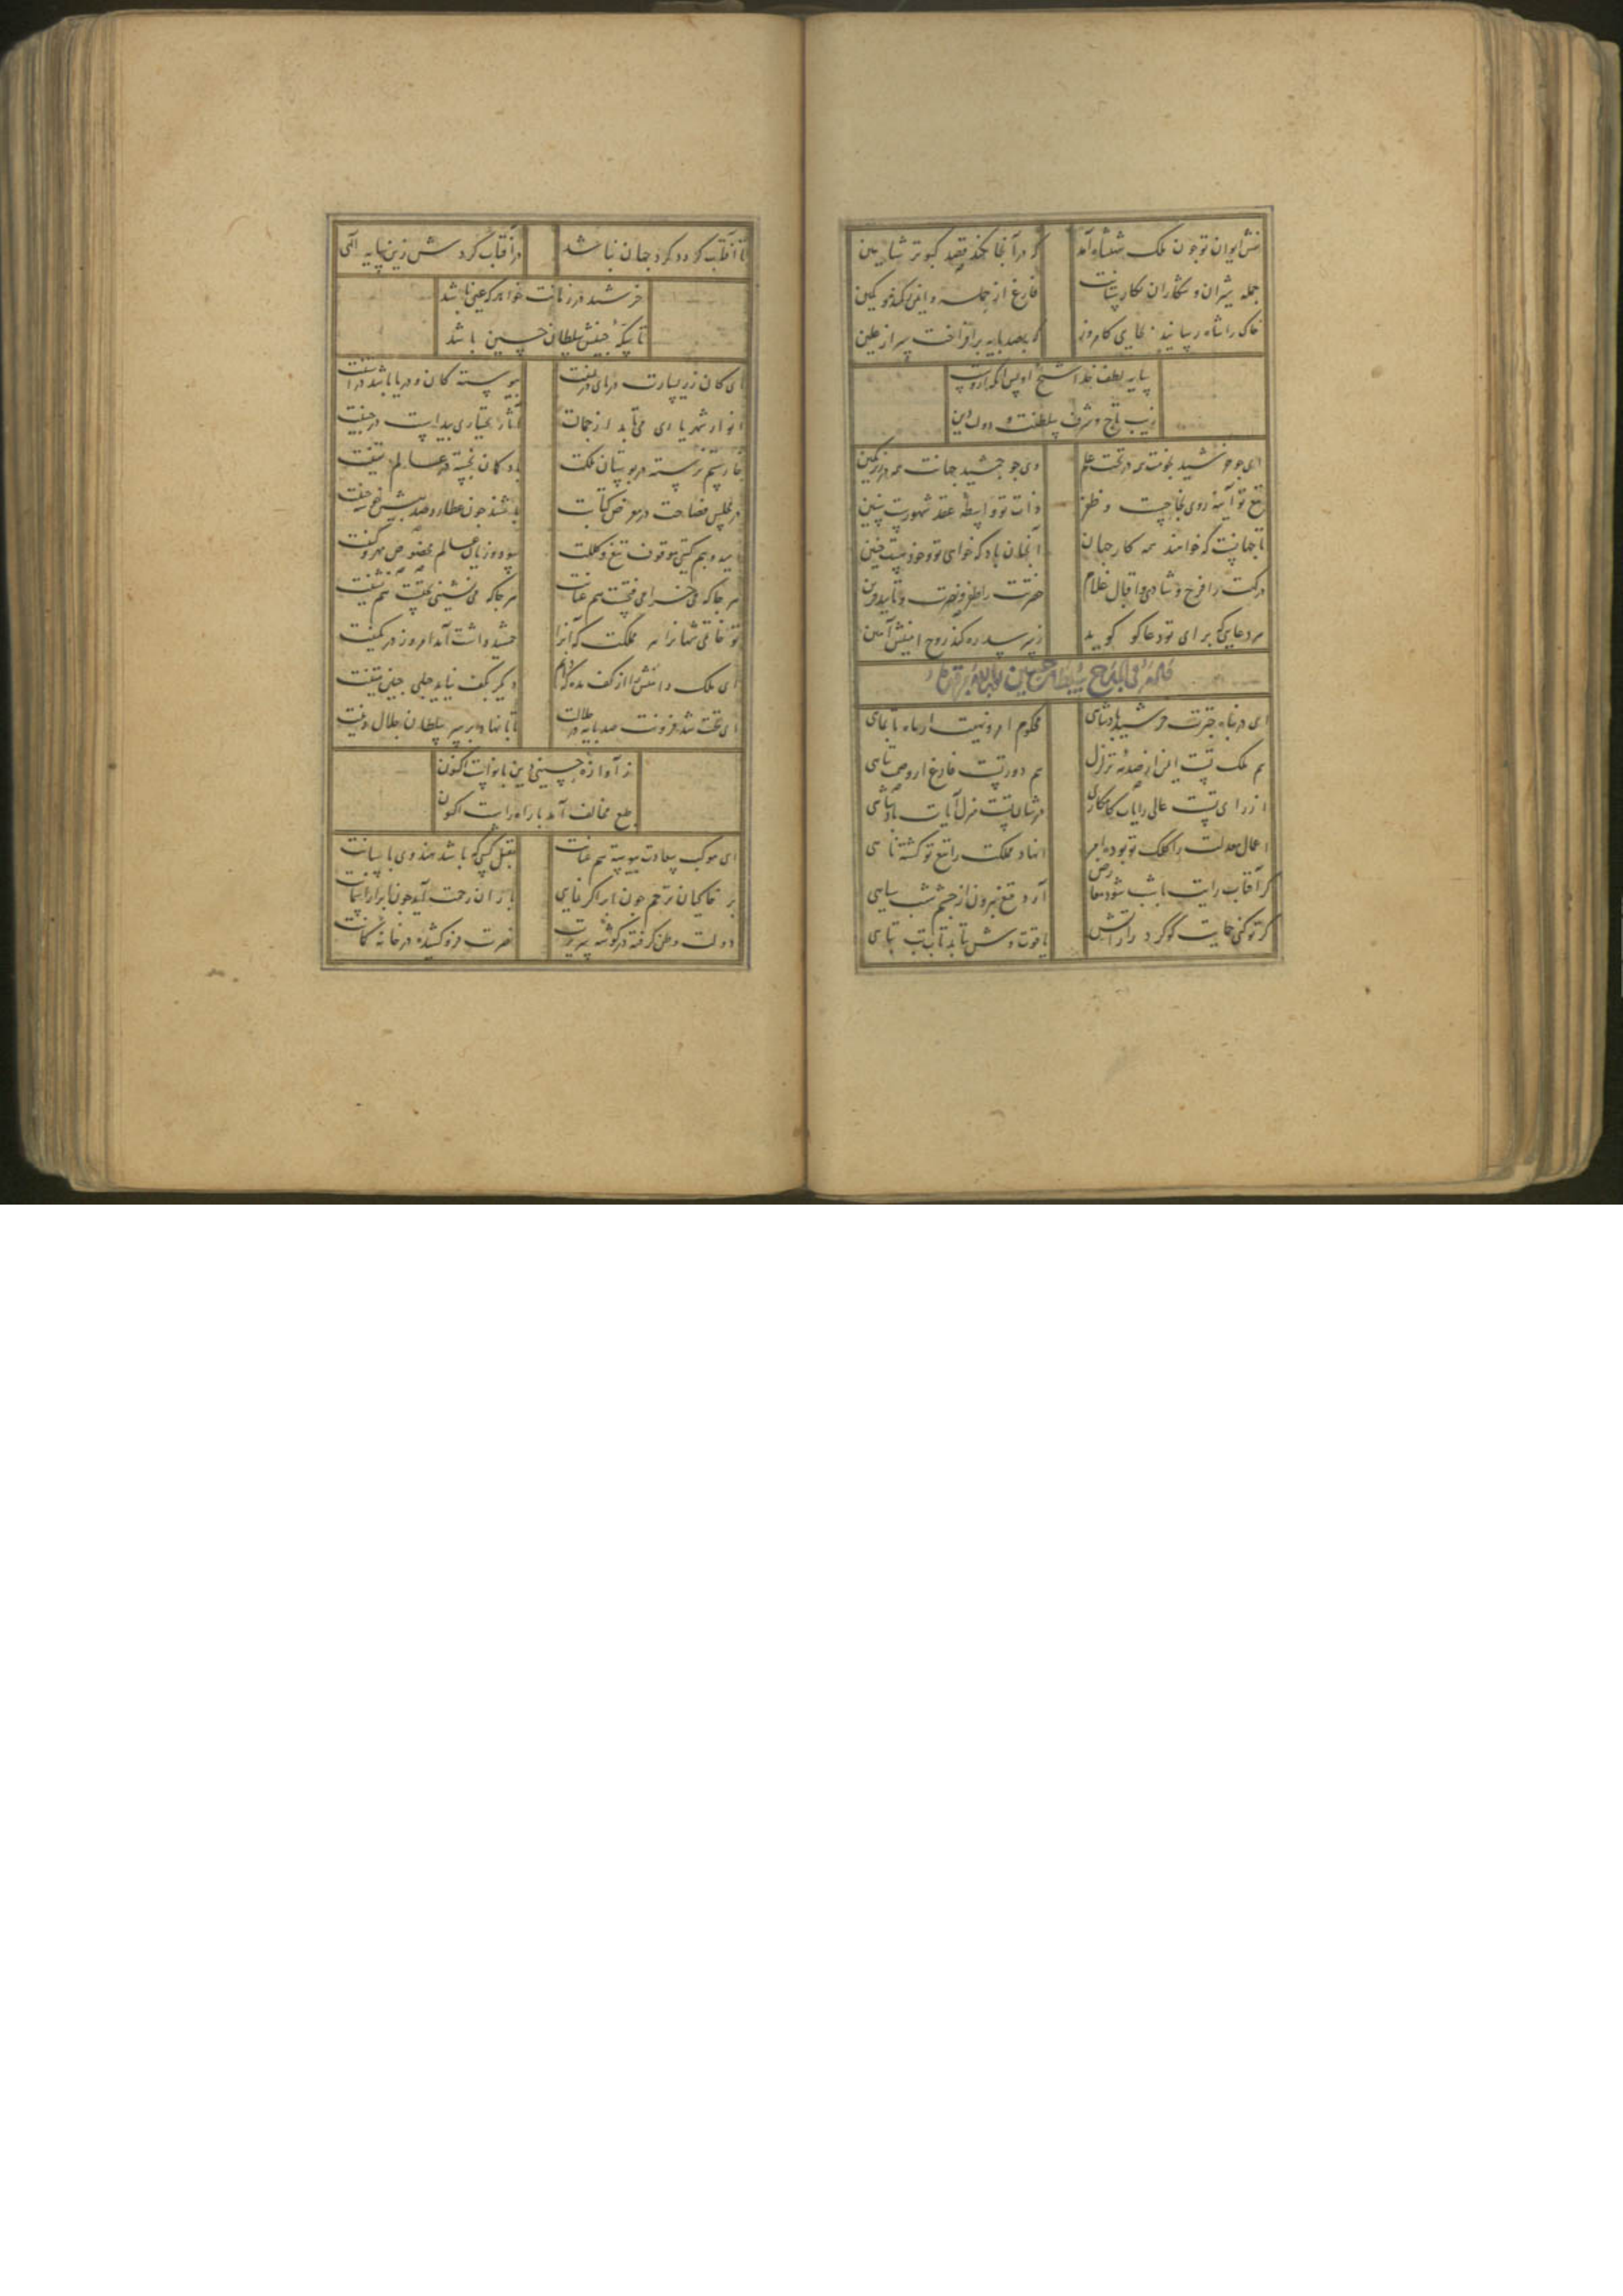 نقش ایوان تو چون ملک شهنشاه آمد
که در آنجا نکند قصد کبوتر شاهین
جمله شیران و شکاران
فارغ از حمله و ایمن
خاک را شاه رسانید بجایی کامروز
که بصد پایه برافراخت سر از علیین
پایه لطف خدا شیخ اویس آنکه ازوست
زیب تاج و شرف سلطنت و دولت و دین
ای چو خورشید بلندت همه در تحت علم
وی چو جمشید جهانت همه در زیر نگین
تیغ تو آینه روی نجاحست و ظفر
ذات تو واسطه عقد شهورست و سنین
تا جهانیست که خوانند همه کار جهان
آنچنان باد که خواهی تو و خود هست چنین
درگهت را فرح و شادی و اقبال غلام
حضرتت را ظفر و نصرت و تایید قرین
هر دعایی که برای تو دعاگو گوید
زیر سدره کند روح امینش آمین
ای در پناه چترت خورشید پادشاهی
محکوم امر و نهیت از ماه تا بماهی
هم ملک تست ایمن از صدمه تزلزل
هم دور تست فارغ از وصمت تناهی
از رای تست عالی رایات کامکاری
در شان تست منزل آیات پادشاهی
اعمال معدلت را کلک تو بوده آمر
انهاد مملکت را تیغ تو گشته ناهی
گر آفتاب رایت با شب شود معارض
آرد بتیغ بیرون از چشم شب سیاهی
گر تو کنی حمایت گوگرد را ز آتش
یاقوت وش نیابد تاب تب تباهی
تا آفتاب گردد گرد جهان نباشد
در آفتاب گردش زین پایه الهی
خرشید در زمانت خواهد که عین باشد
تا سکه جبینش سلطان حسین باشد
ای کان زر یسارت دریای در یمینت
پیوسته کان و دریا باشد در آستینت
انوار شهریاری می‌تابد از جمالت
آثار بختیاری پیداست در جبینت
نارسته در بوستان ملکت
در مجلس فصاحت در معرض کتابت
باشند چون عطارد صد پیش
امید و بیم گیتی موقوف تیغ و کلکت
سود و زیان عالم مخصوص مهر و کینت
هر جا که می خرامی فتحست هم عنانت
هر جا که می نشینی بختست هم نشینت
تو خاتمی شهان را هر مملکت که آنرا
جمشید داشت آمد امروز در نگینت
ای ملک دامنش را از کف مده که دیگر
در کف نیاید حبلی چنین متینت
ای تخت شد فزونت صد پایه در جلالت
تا پا نهاد بر سر سلطان جلال دینت
ز آوازه حسینی دین با نواست اکنون
طبع مخالف آمد با راه راست اکنون
ای موکب سعادت پیوسته هم عنانت
مقبل کسی که باشد هندوی پاسبانت
بر خاکیان ترحم چون ابر اگر نمایی
باران رحمت آید چون ابر از آسمانت
دولت وطن گرفته در گوشه سریرت
نصرت فرو کشیده در خانه کمانت